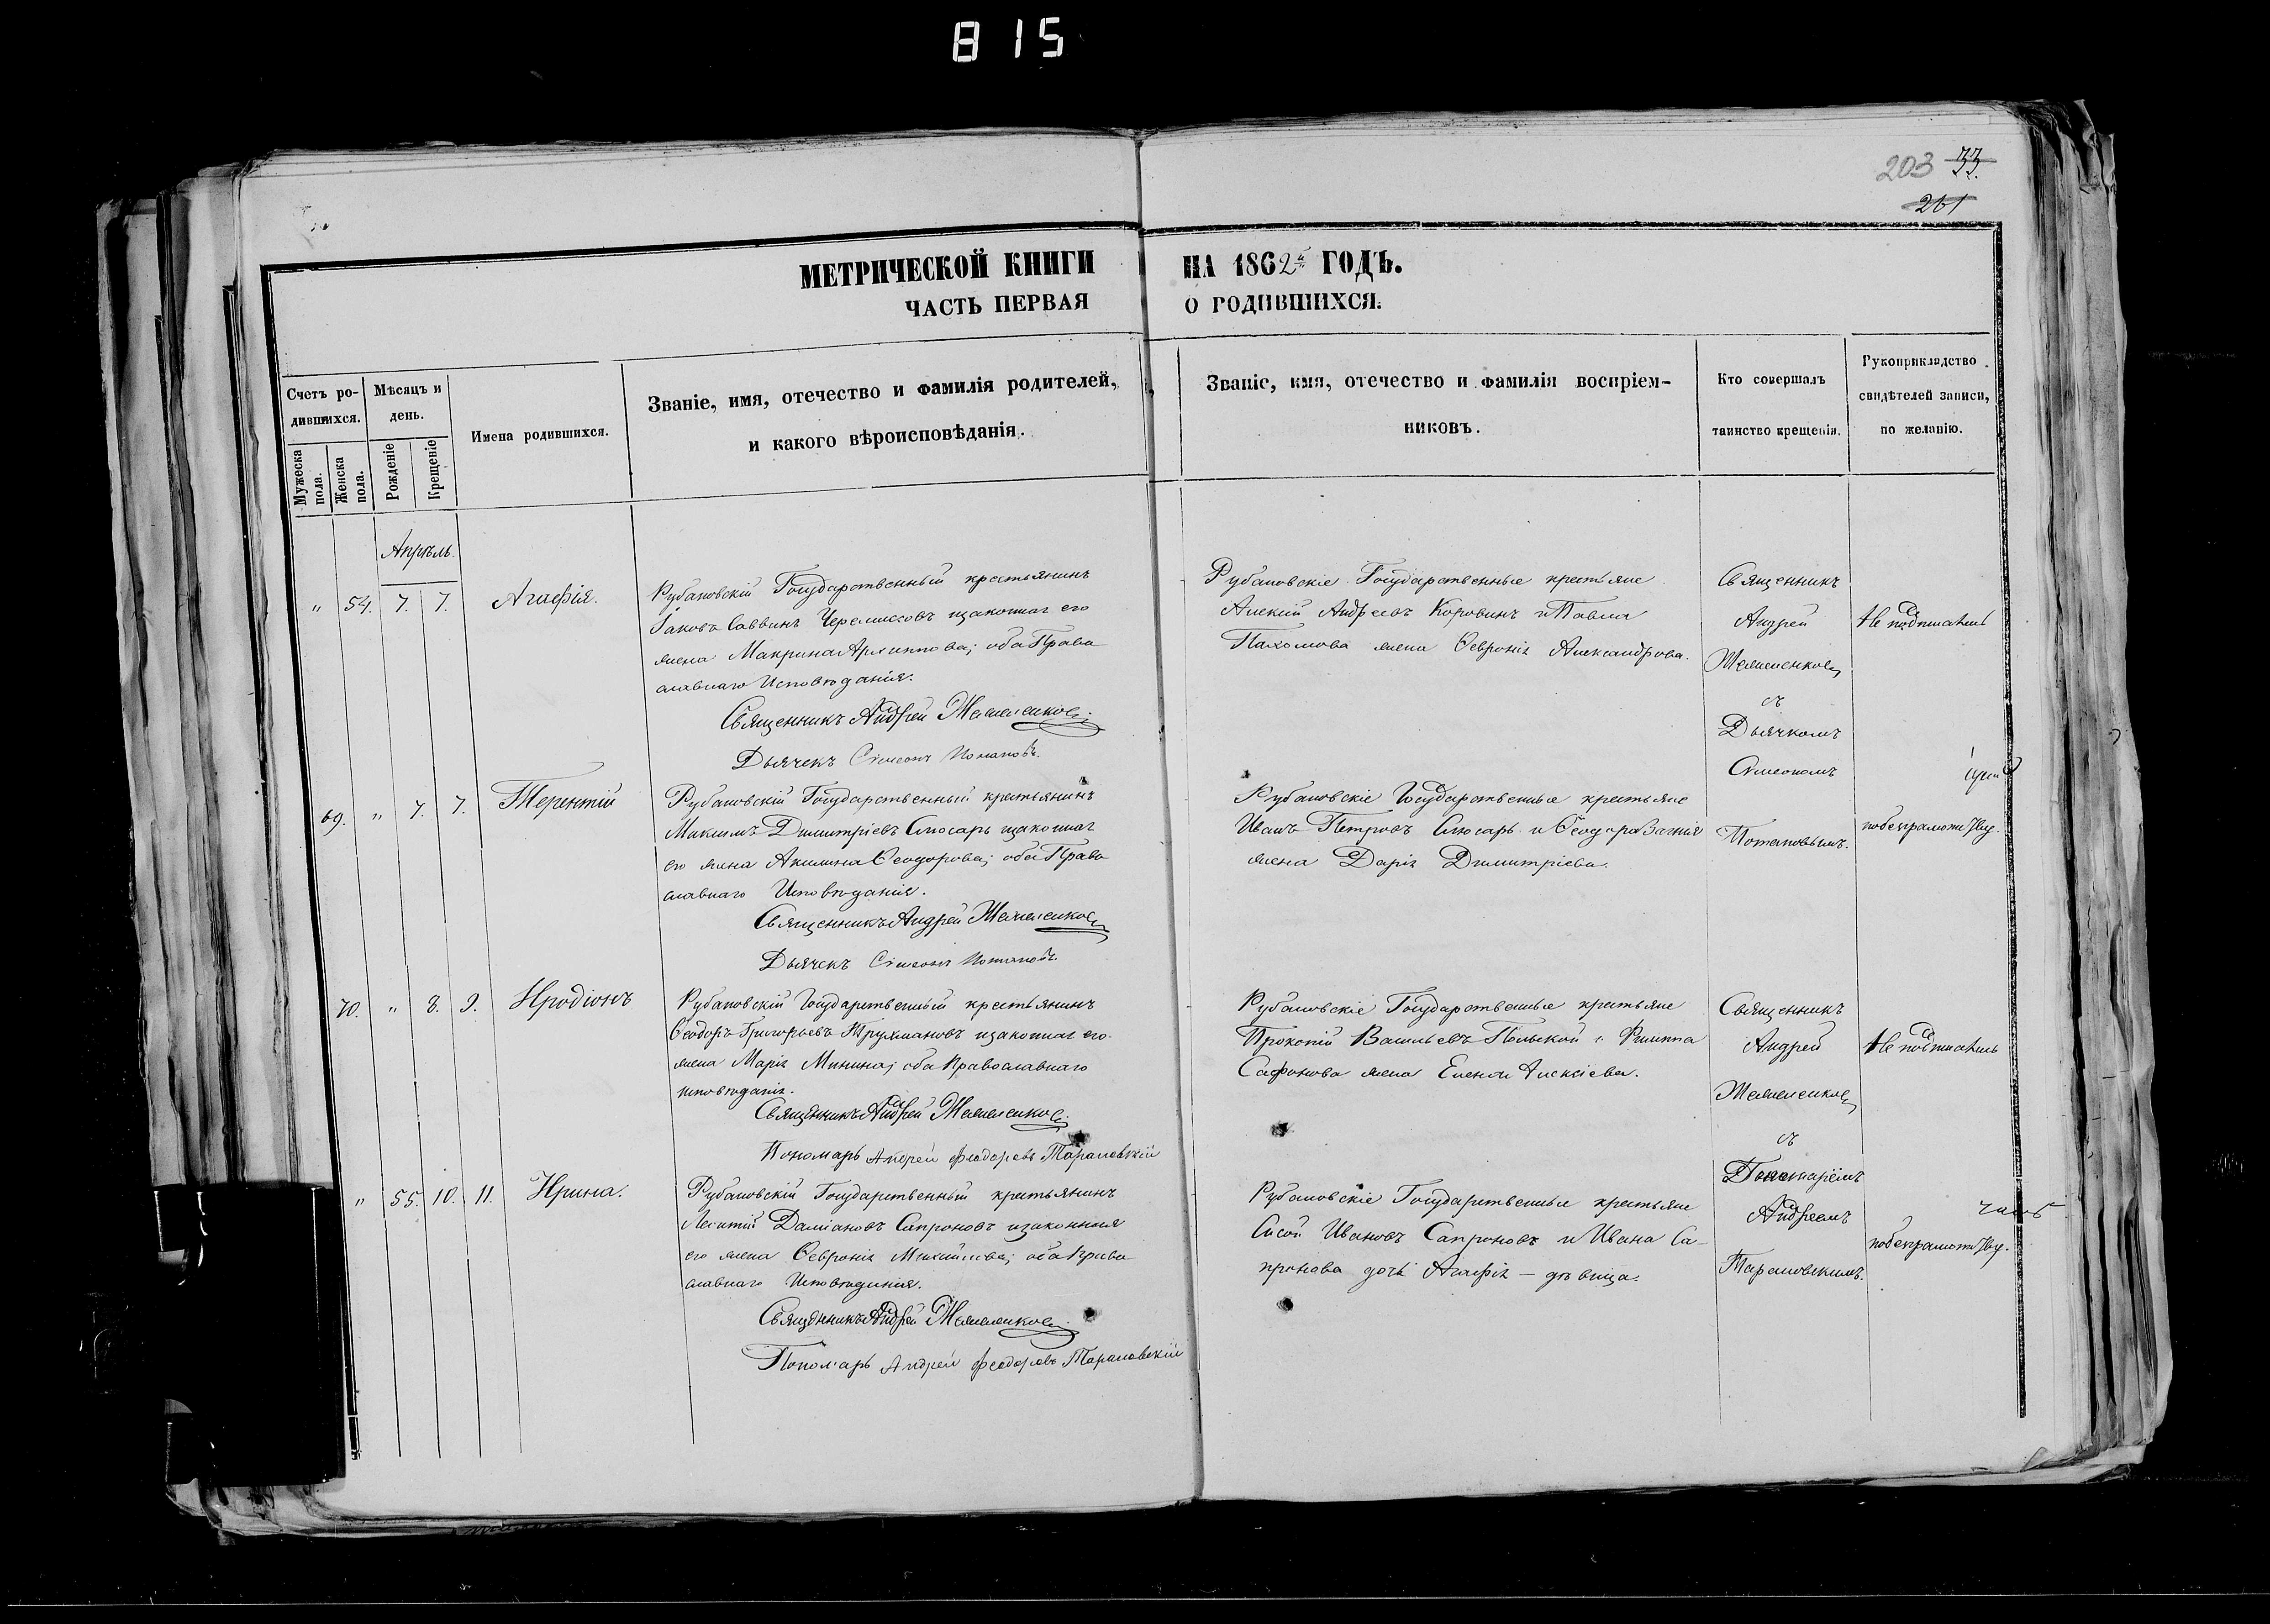 815
203 33.
261
МЕТРИЧЕСКОЙ КНИГИ НА 1862й ГОДЪ.
ЧАСТЬ ПЕРВАЯ О РОДИВШИХСЯ.
Счетъ ро-
дившихся.
Мужеска пола.
Женска пола.
Мѣсяцъ и
день.
Рожденіе
Крещеніе
Имена родившихся.
Званіе, имя, отечество и фамилія родителей,
и какого вѣроисповѣданія.
Званіе, имя, отечество и фамилія воспріем-
никовъ.
Кто совершалъ
таинство крещенія.
Рукоприкладство
свидѣтелей записи,
по желанію.
Апрѣль.
" 54. 7. 7. Агафія.
Рубановскій Государственный крестьянинъ
Іаковъ Саввинъ Черемисовъ изаконная его
жена Макрина Архиппова; оба Право
славнаго Исповѣданія.
Священникъ Андрей
Дьячекъ Сімеонъ Потаповъ.
Рубановскіе Государственные крестьяне
Алексій Андреевъ Коровинъ и Павла
Пахомова жена Февронія Александрова.
Священникъ
Андрей
съ
Дьячкомъ
Сімеономъ
Потаповымъ.
Не подписались
по безграмотству.
69. " 7. 7. Терентій
Рубановскій Государственный крестьянинъ
Максимъ Димитріевъ Слюсарь изаконная
его жена Акилина Феодорова; оба Право
славнаго Исповѣданія.
Священникъ Андрей
Дьячекъ Сімеонъ Потаповъ.
Рубановскіе Государственные крестьяне
Иванъ Петровъ Слюсарь и Феодора
жена Дарія Димитріева.
70. " 8. 9. Иродіонъ
Рубановскій Государственный крестьянинъ
Феодоръ Григорьевъ Трухмановъ изаконная его
жена Марія Минина; оба Православнаго
исповѣданія.
Священникъ Андрей
Пономарь Андрей Феодоровъ Тарановскій
Рубановскіе Государственные крестьяне
Прокопій Васильевъ Польской и Филиппа
Сафонова жена Елена Алексіева.
Священникъ
Андрей
съ
Пономаремъ
Андреемъ
Тарановскимъ.
Не подписались
по безграмотству.
" 55. 10. 11. Ирина.
Рубановскій Государственный крестьянинъ
Леонтій Даміановъ Сапроновъ изаконная
его жена Февронія Михайлова; оба Право
славнаго Исповѣданія.
Священникъ Андрей
Пономарь Андрей Феодоровъ Тарановскій
Рубановскіе Государственные крестьяне
Сисой Ивановъ Сапроновъ и Ивана Са-
пронова дочь Агафія — дѣвица.